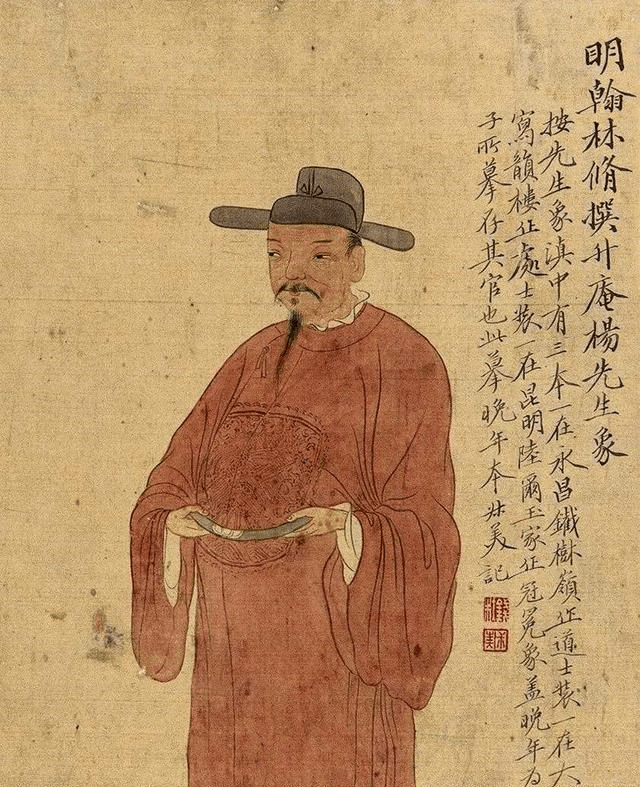 明翰林脩撰升庵楊先生象
按先生象滇中有三本一在永昌鐵樹嶺作道士裝一在大
寫韻樓作處士裝一在昆明陸爾玉家作冠冕象蓋晚年為
子所摹存其官也此摹晚年本叔美記